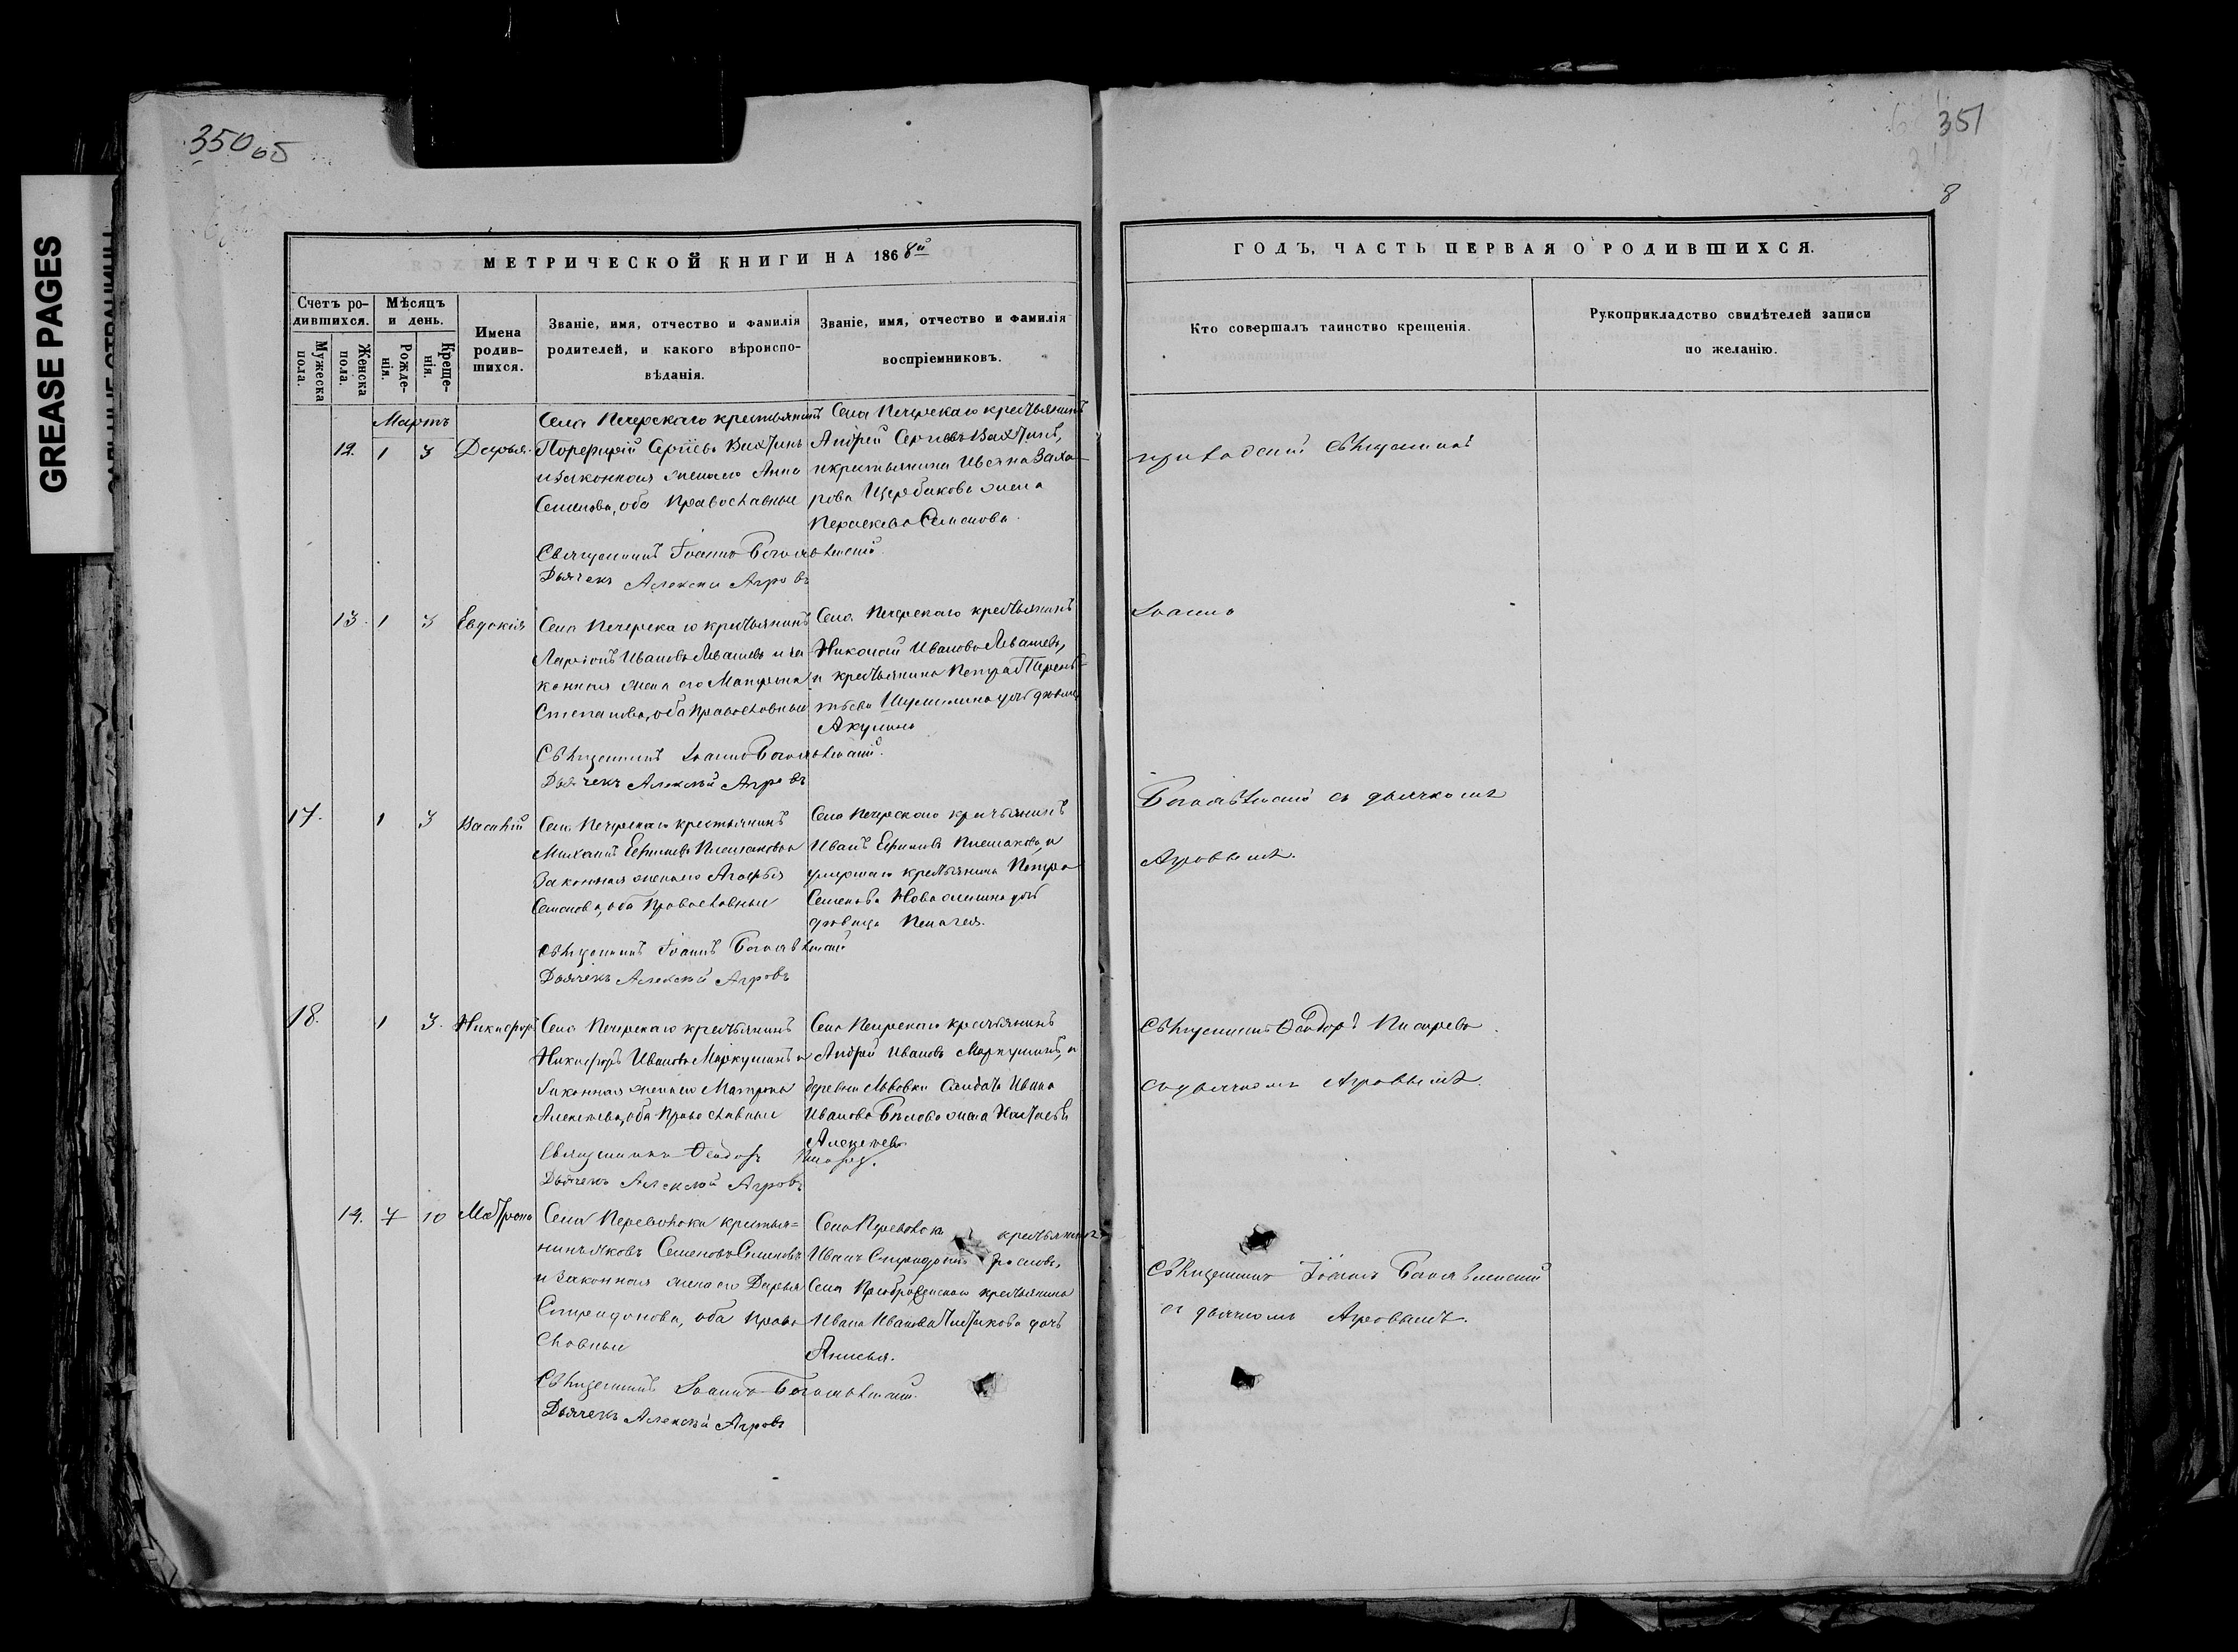 350 об
351
8
GREASE PAGES
МЕТРИЧЕСКОЙ КНИГИ НА 1868й
Счетъ ро-
дившихся.
Мужеска
пола.
Женска
пола.
Мѣсяцъ
и день.
Рожде-
нія.
Креще-
нія.
Имена
родив-
шихся.
Званіе, имя, отчество и фамилія
родителей, и какого вѣроиспо-
вѣданія.
Званіе, имя, отчество и фамилія
воспріемниковъ.
Мартъ
12. 1 3 Дарья.
Села Печерскаго крестьянинъ
Порфирій Сергѣевъ Вахтинъ
и законная жена его Анна
Семенова, оба Православные
Села Печерскаго крестьянинъ
Андрей Сергѣевъ Вахтинъ,
и крестьянина Ивана Заха-
рова Щербакова жена
Параскева Семенова.
Священникъ Іоаннъ Богоявленскій.
Дьячекъ Алексѣй Агровъ
13. 1 3 Евдокія
Села Печерскаго крестьянинъ
Ларіонъ Ивановъ Левашевъ и за
конная жена его Матрена
Степанова, оба Православные
Села Печерскаго крестьянинъ
Николай Ивановъ Левашевъ,
и крестьянина Петра Терен-
тьева дочь девица
Акулина
Священникъ Іоаннъ Богоявленскій.
Дьячекъ Алексѣй Агровъ
17. 1 3 Василій
Села Печерскаго крестьянинъ
Михаилъ Ефимовъ Плешаковъ и
законная жена его Агафья
Семенова, оба Православные
Села Печерскаго крестьянинъ
Иванъ Ефимовъ Плешаковъ, и
умершаго крестьянина Петра
Семенова дочь
девица Пелагея.
Священникъ Іоаннъ Богоявленскій
Дьячекъ Алексѣй Агровъ
18. 1 3. Никифоръ
Села Печерскаго крестьянинъ
Никифоръ Ивановъ Маркушинъ и
законная жена его Матрона
Алексѣева, оба Православные
Села Печерскаго крестьянинъ
Андрей Ивановъ Маркушинъ, и
деревни Львовки Солдата Ивана
Иванова Бѣлова жена Настасья
Алексѣева
Священникъ Феодоръ Писарев.
Дьячекъ Алексѣй Агровъ
14. 7 10 Матрона
Села Переволоки крестья=
нинъ Яковъ Семеновъ Семеновъ
и законная жена его Дарья
Спиридонова, оба Право
славные
Села Переволоки крестьянинъ
Иванъ Спиридоновъ
Села Преображенскаго крестьянина
Ивана Иванова дочь
Анисья.
Священникъ Іоаннъ Богоявленскій.
Дьячекъ Алексѣй Агровъ
ГОДЪ, ЧАСТЬ ПЕРВАЯ О РОДИВШИХСЯ.
Кто совершалъ таинство крещенія.
Рукоприкладство свидѣтелей записи
по желанію.
приходскій Священникъ
Іоаннъ
Богоявленскій съ дьячкомъ
Агровымъ.
Священникъ Феодоръ Писаревъ
съ дьячкомъ Агровымъ.
Священникъ Іоаннъ Богоявленскій
съ дьячкомъ Агровымъ.